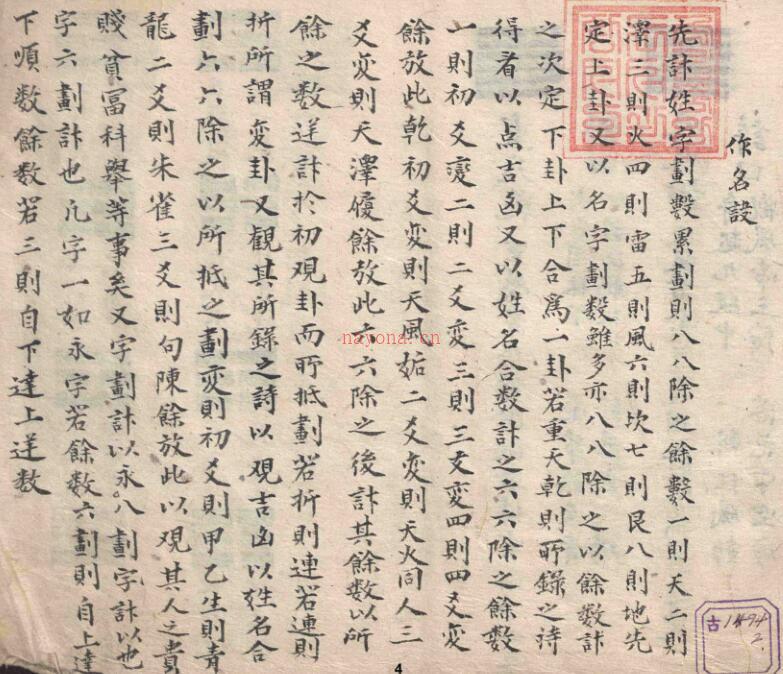 作名設
先計姓字劃數累劃則八八除之餘數一則天二則
澤三則火四則雷五則風六則坎七則艮八則地先
定上卦又以名字劃数雖多亦八八除之以餘数計
之次定下卦上下合爲一卦若重天乾則所錄之詩
得看以点吉凶又以姓名合数計之六六除之餘数
一則初爻變二則二爻変三則三爻変四則四爻変
餘放此乾初爻変則天風姤二爻変則天火同人三
爻变則天澤履餘放此六六除之後計其餘数以所
餘之数逆計於初观卦而所抵劃若折則連若連則
折所謂変卦又觀其所錄之詩以观吉凶以姓名合
劃六六除之以所抵之劃变則初爻則甲乙生則青
龍二爻則朱雀三爻則句陳餘放此以观其人之貴
賤貧冨科舉等事矣又字劃計以永八劃字計以也
字六劃計也凡字一如永字若餘数六劃則自上達
下順数餘数若三則自下達上逆数
nayona.cn
古1494
2.
4